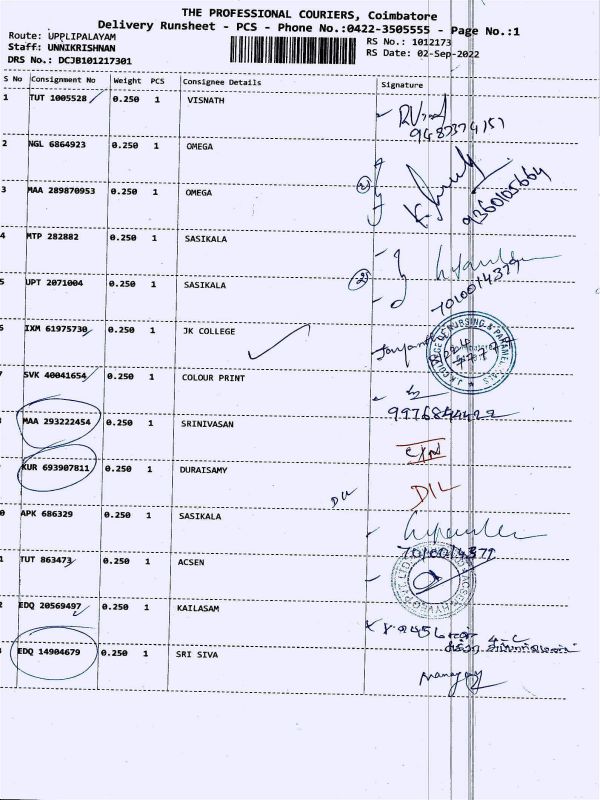 THE PROFESSIONAL COURIERS, Coimbatore
Delivery Runsheet - PCS - Phone No.:0422-3505555 - Page No.:1
Route: UPPLIPALAYAM
Staff: UNNIKRISHNAN
DRS No.: DCJB101217301
RS No.: 1012173
RS Date: 02-Sep-2022
S No Consignment No Weight PCS Consignee Details Signature
1 TUT 1005528 0.250 1 VISNATH
2 NGL 6864923 0.250 1 OMEGA
3 MAA 289870953 0.250 1 OMEGA
9360105664
4 MTP 282882 0.250 1 SASIKALA
5 UPT 2071004 0.250 1 SASIKALA
7010014377
6 IXM 61975730 0.250 1 JK COLLEGE
7 SVK 40041654 0.250 1 COLOUR PRINT
9976844422
MAA 293222454 0.250 1 SRINIVASAN
KUR 693907811 0.250 1 DURAISAMY
D/L
0 APK 686329 0.250 1 SASIKALA
7010014377
1 TUT 863473 0.250 1 ACSEN
2 EDQ 20569497 0.250 1 KAILASAM
EDQ 14904679 0.250 1 SRI SIVA